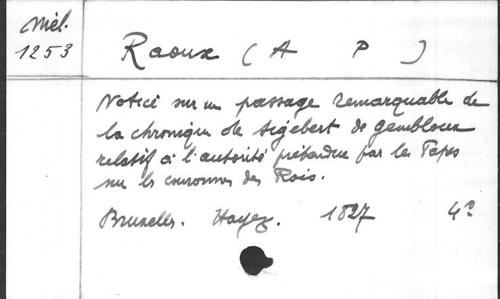 Mél. 1253
Raoux (A P )
Notice sur un passage remarquable de
la chronique de Sigebert de Gembloux
relatif à l'autorité prétendue par les Papes
sur les couronnes des Rois.
Bruxelles. Hayez. 1827 4º